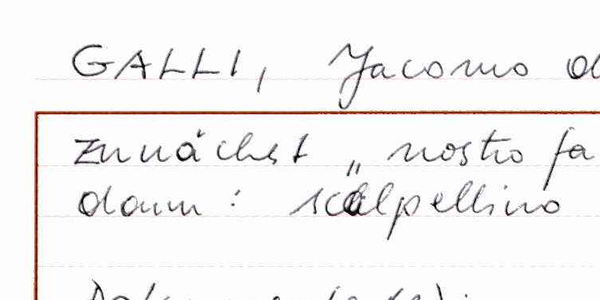 GALLI, Jacomo d
Zunächst „nostro fa
dann: scalpellino